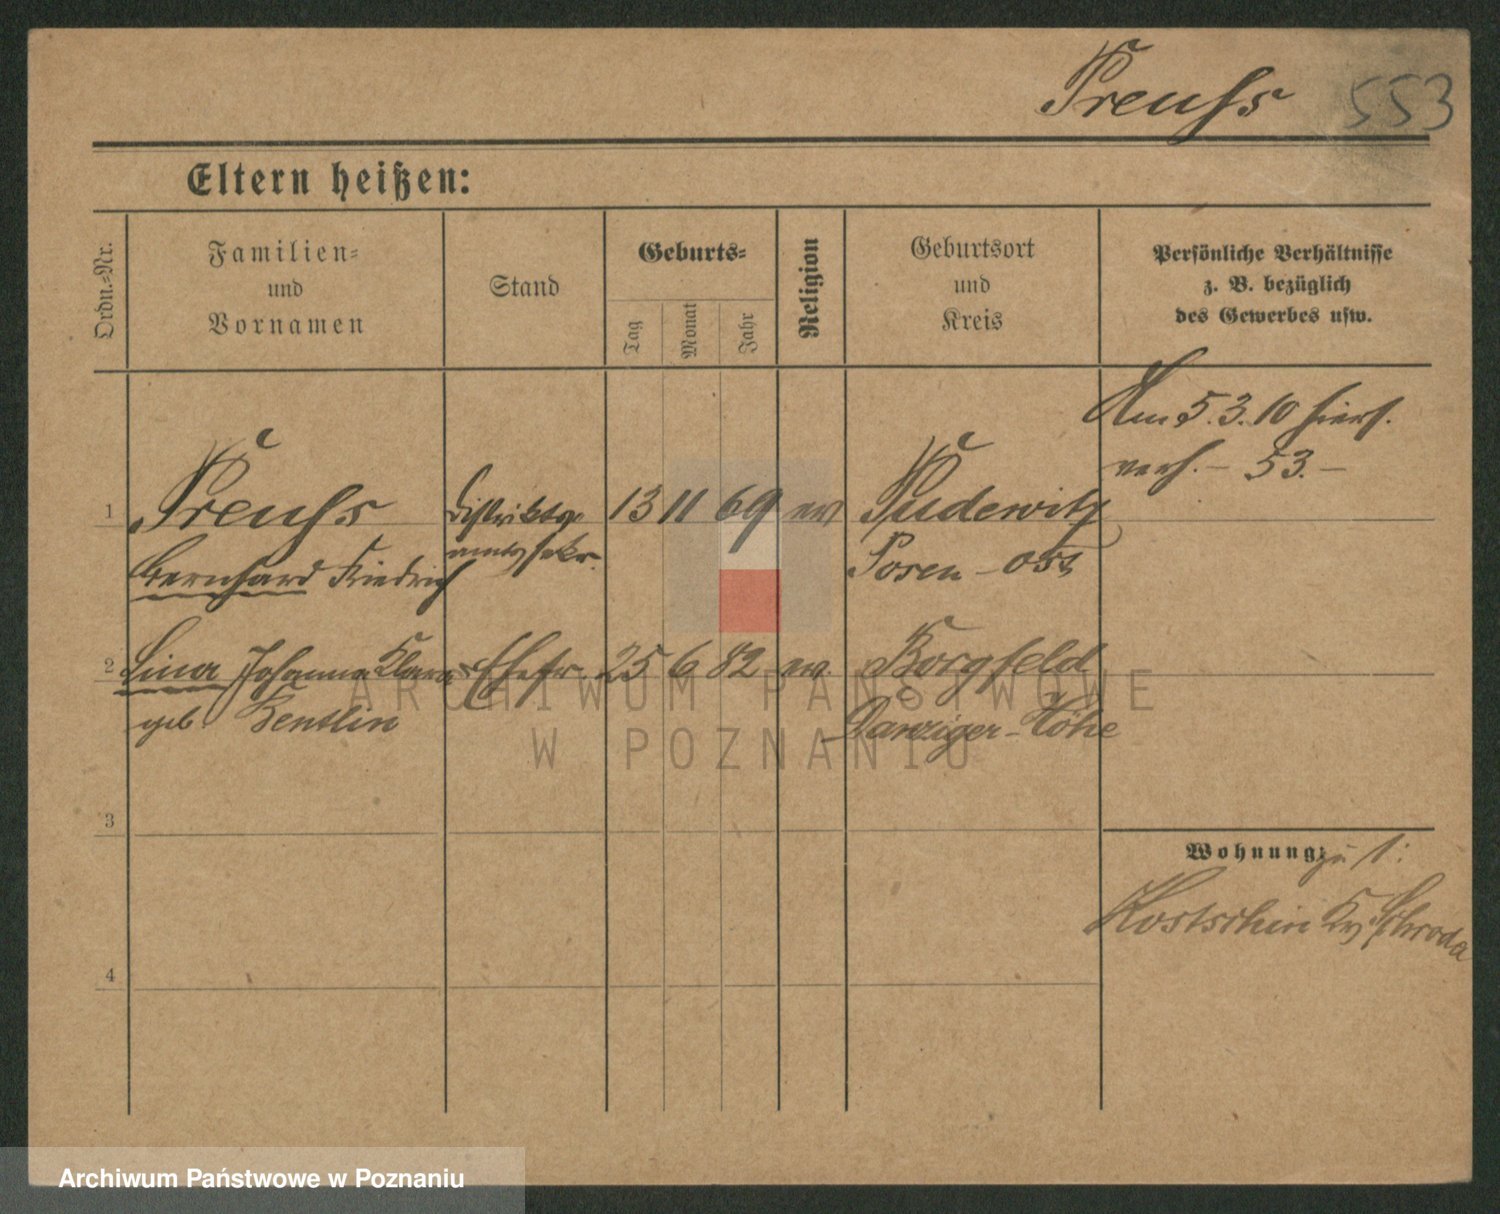 Preuss 553
Eltern heißen:
Ordn.-Nr.
Familien-
und
Vornamen
Stand
Geburts-
Tag
Monat
Jahr
Religion
Geburtsort
und
Kreis
Persönliche Verhältnisse
z. B. bezüglich
des Gewerbes usw.
Am 5.3.10 hiers.
verh. – 53. –
1 Preuss Distrikts- 13 11 69 ev Pudewitz
amtssekr. Posen-Ost
Bernhard Friedrich
2 Lina Johanna Klara Ehefr. 25 6 82 ev. Borgfeld
geb Danziger-Höhe
3
Wohnung: zu 1:
Kostschin Kr. Schroda
4
ARCHIWUM PAŃSTWOWE
W POZNANIU
Archiwum Państwowe w Poznaniu